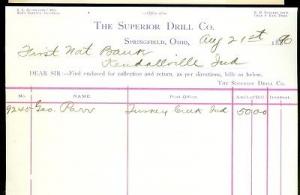 THE SUPERIOR DRILL CO.
SPRINGFIELD, OHIO, Aug 21st 1890
First Nat Bank
Kendallville Ind
DEAR SIR:—Find enclosed for collection and return, as per directions, bills as below.
THE SUPERIOR DRILL CO.
No. NAME Post-Office
9245 Geo. Parr Turkey Creek Ind 50 00